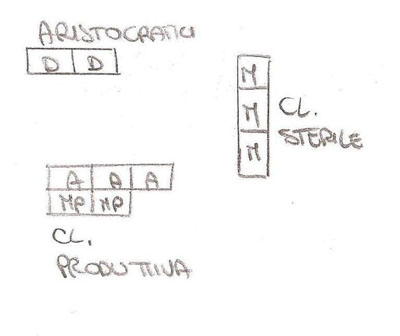 ARISTOCRATICI
D D
M
M
M
CL.
STERILE
A A A
MP MP
CL.
PRODUTTIVA